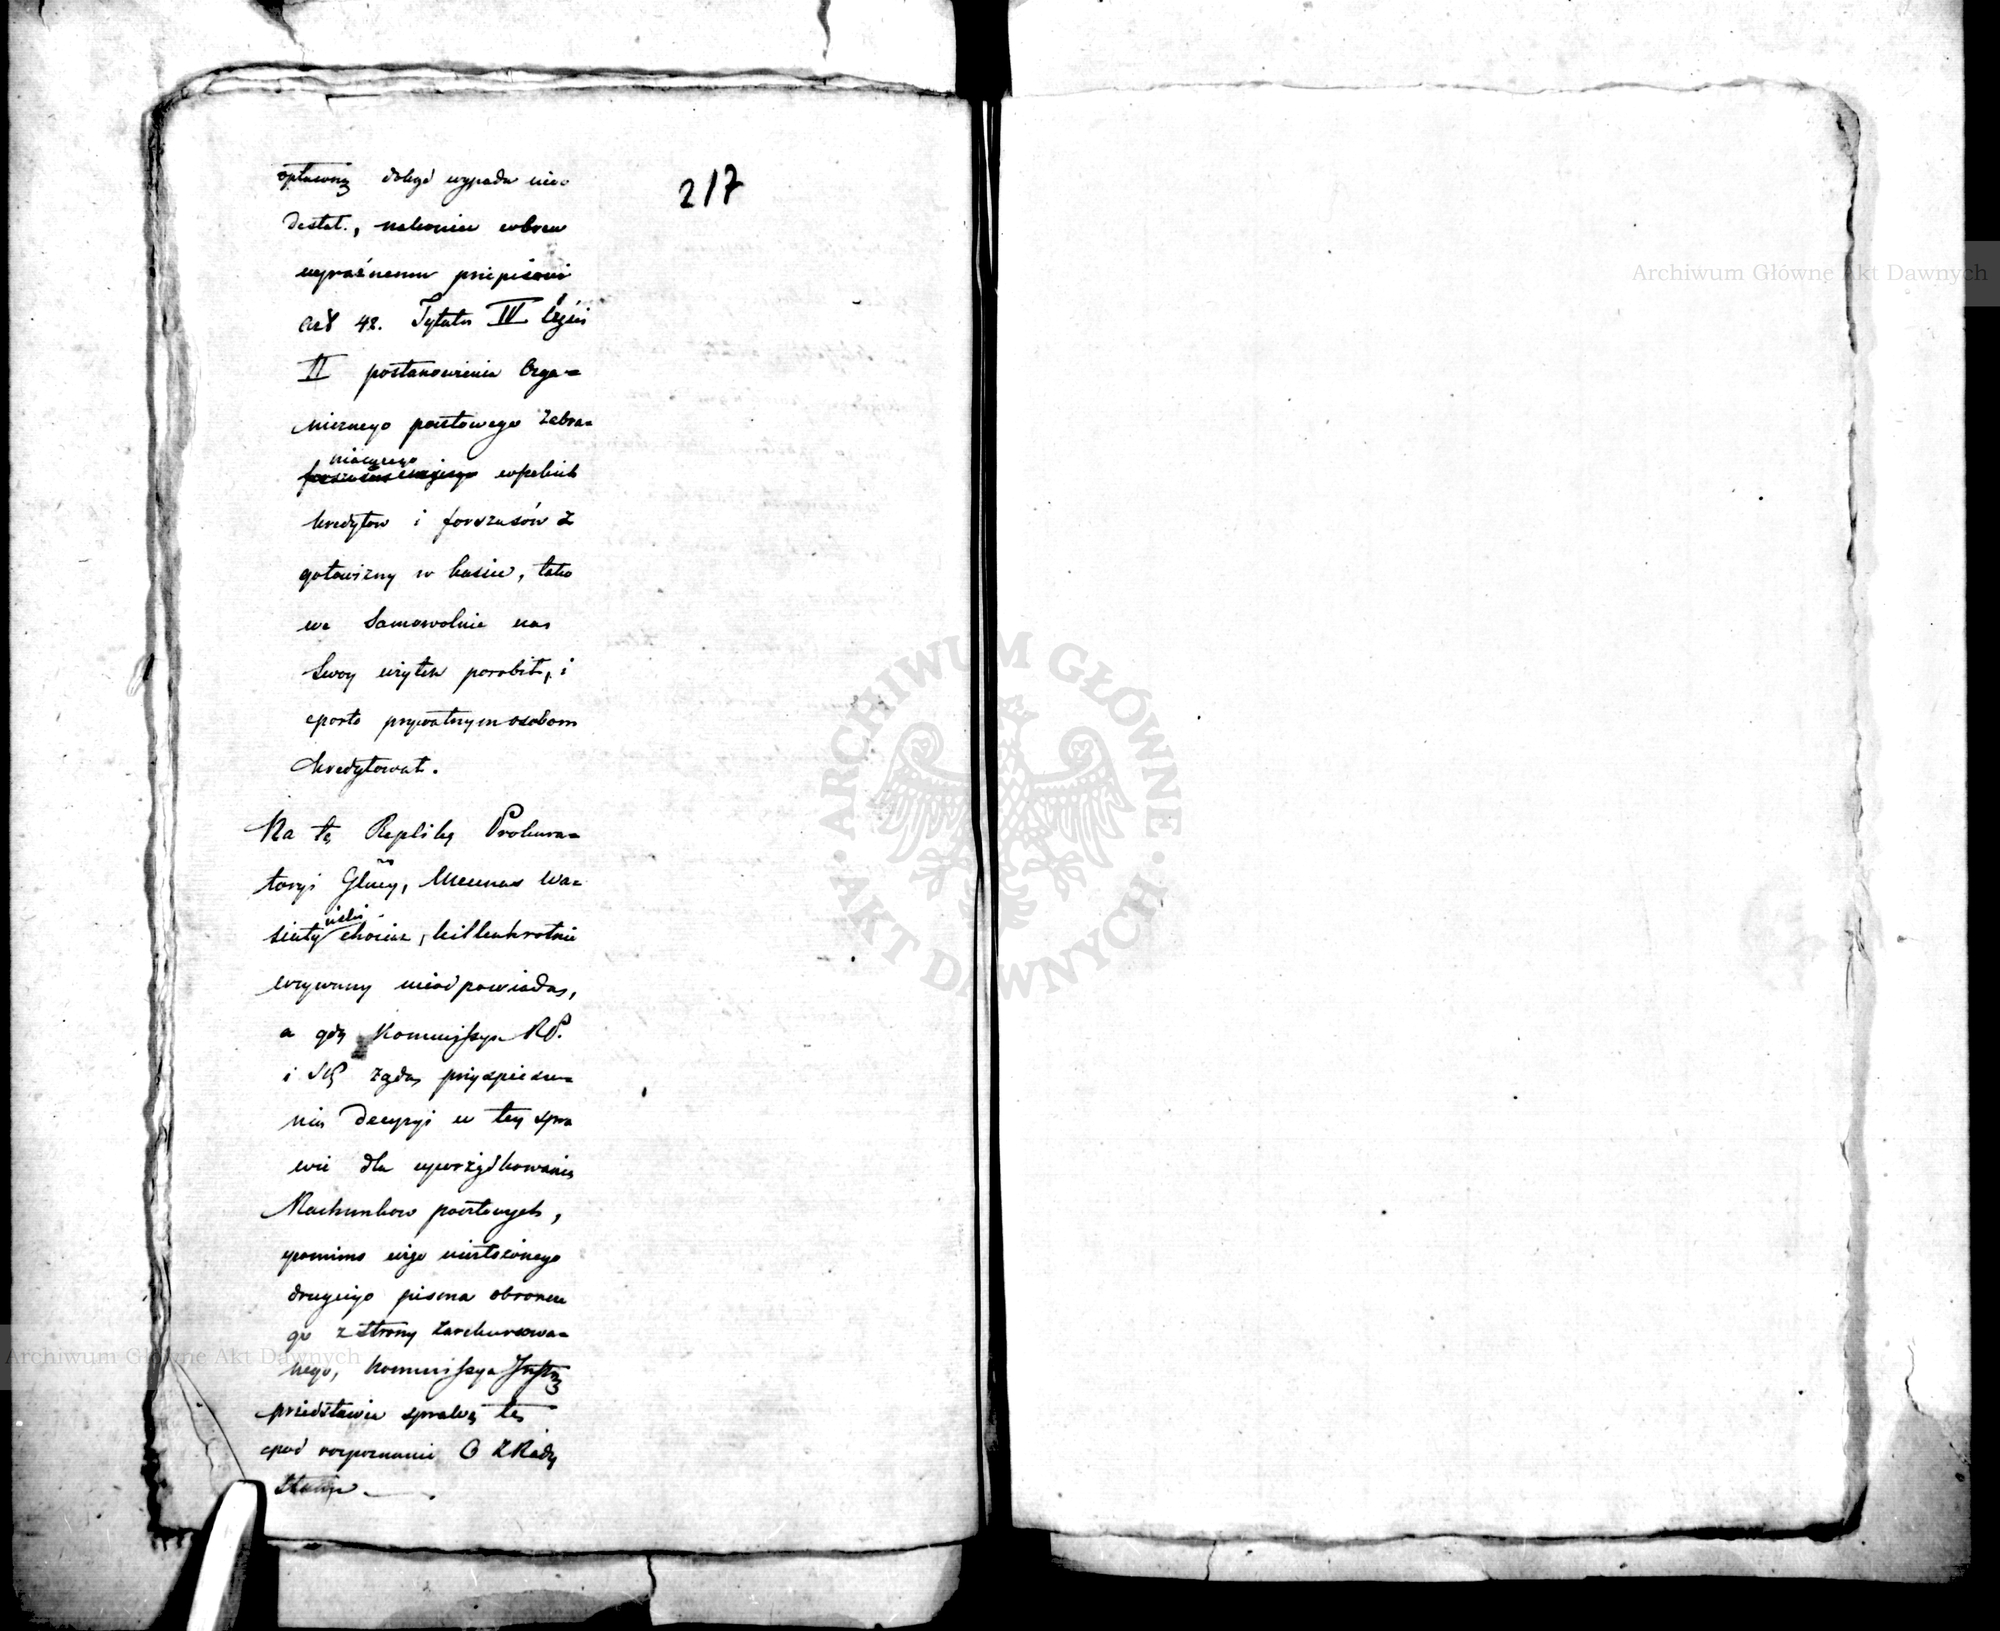 217
wypada nie
dostał, nakoniec wbrew
wyraźnemu przepisowi
Art 42. Tytułu IV Części
II postanowienia Orga=
nicznego pocztowego zabra=
niaiącego wszelkich
kredytow i forszusów z
gotowizny w kassie, tako
we Samowolnie na
Swoy użytek porobił, i
oporto prywatnym osobom
kredytował.
Na tę Replikę Prokura=
toryi Glney, Mecenas Wa=
kilkakrotnie
wzywany nieodpowiada,
a gdy Kommissya RP.
i S żąda przyspiesze=
nia Decyzyi w tey spra
wie dla uporządkowania
Rachunkow pocztowych,
pomimo niezłożonego
drugiego pisma obronne
go z strony zaskarżowa=
nego, Kommissya
przedstawia sprawę tę
pod rozpoznanie O Z Rady
Stanu.
Archiwum Główne Akt Dawnych
ARCHIWUM GŁÓWNE
AKT DAWNYCH
Archiwum Główne Akt Dawnych